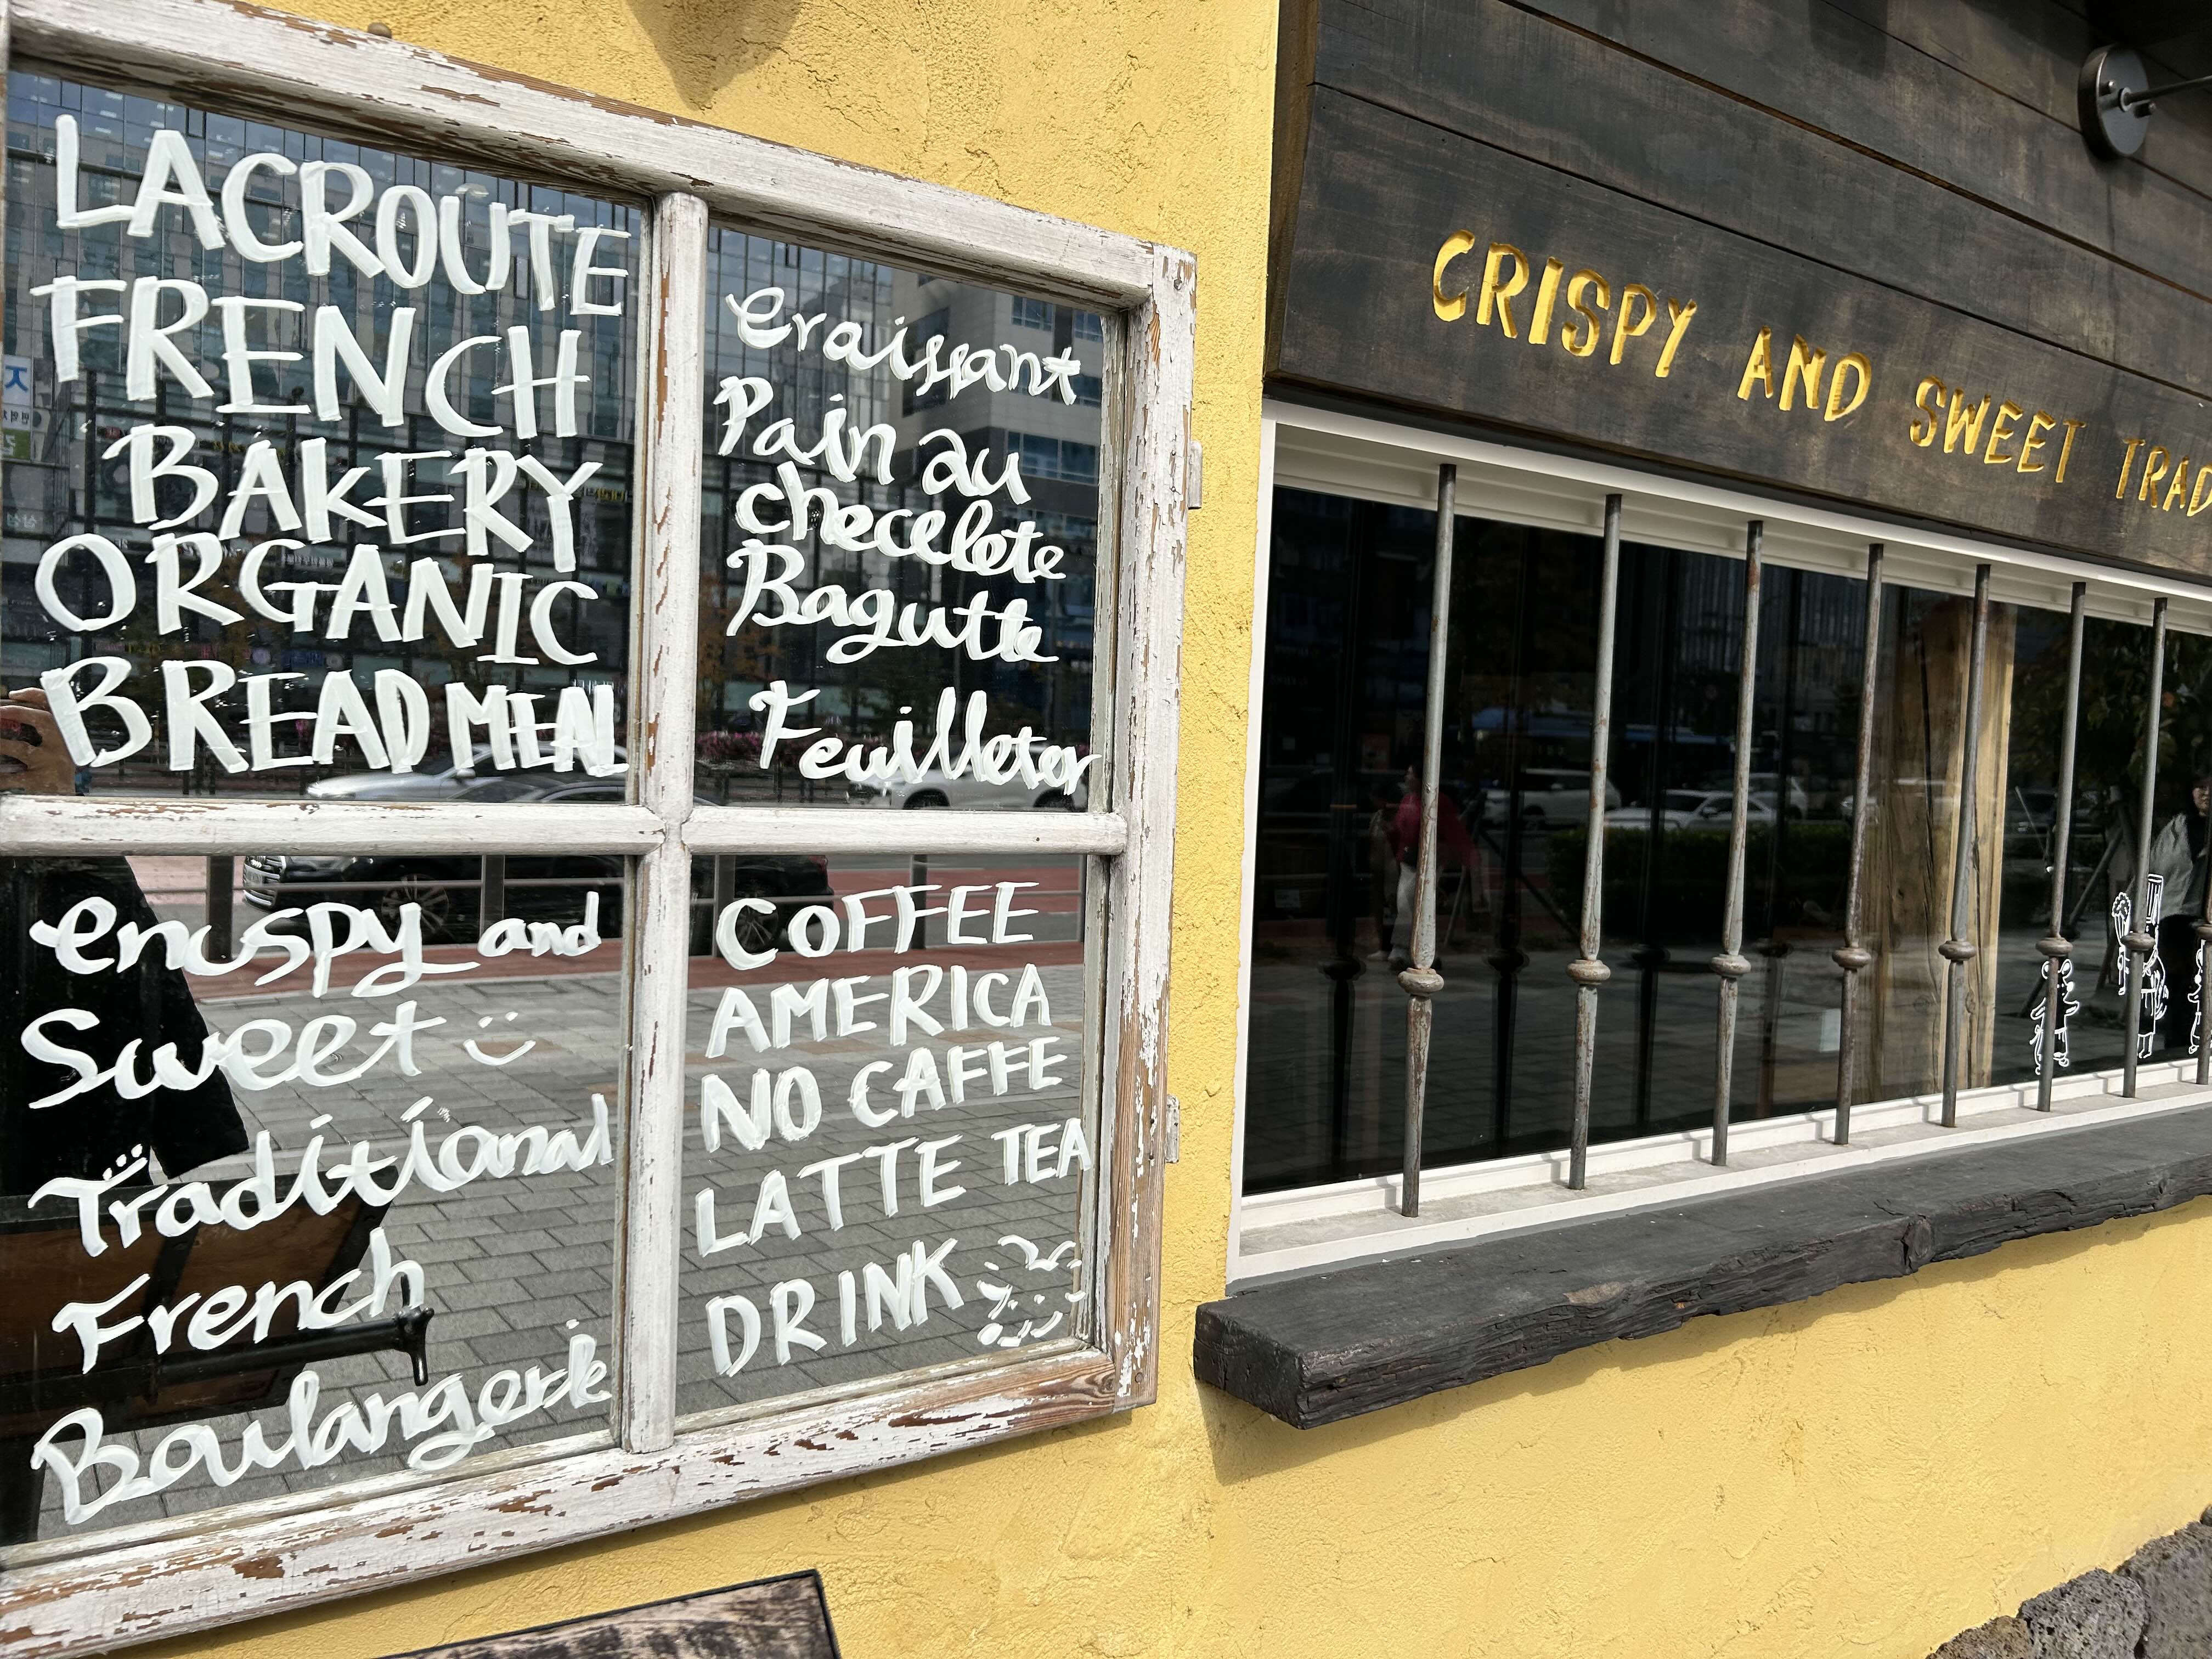 LACROUTE
FRENCH
BAKERY
ORGANIC
BREAD MEAL
eraissant
Pain au
checelete
Bagutte
Feuilleter
encspy and
Sweet
Traditional
French
Boulangerie
COFFEE
AMERICA
NO CAFFE
LATTE TEA
DRINK
CRISPY AND SWEET TRAD